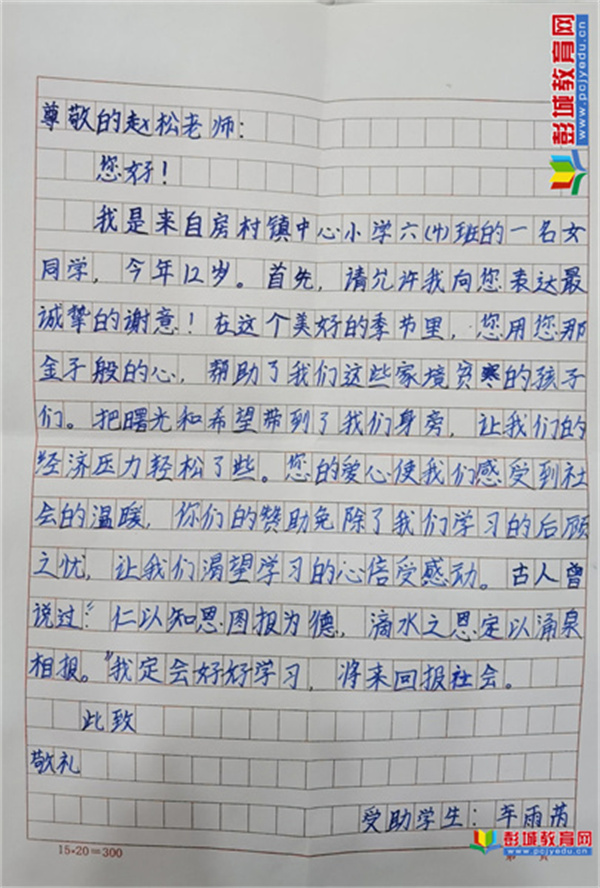 彭城教育网
www.pcjyedu.cn
尊敬的赵松老师：
您好！
我是来自房村镇中心小学六(4)班的一名女
同学，今年12岁。首先，请允许我向您表达最
诚挚的谢意！在这个美好的季节里，您用您那
金子般的心，帮助了我们这些家境贫寒的孩子
们。把曙光和希望带到了我们身旁，让我们的
经济压力轻松了些。您的爱心使我们感受到社
会的温暖，你们的赞助免除了我们学习的后顾
之忧，让我们渴望学习的心倍受感动。古人曾
说过：“仁以知恩图报为德，滴水之恩定以涌泉
相报。”我定会好好学习，将来回报社会。
此致
敬礼
受助学生：车雨芮
15×20=300
彭城教育网
www.pcjyedu.cn